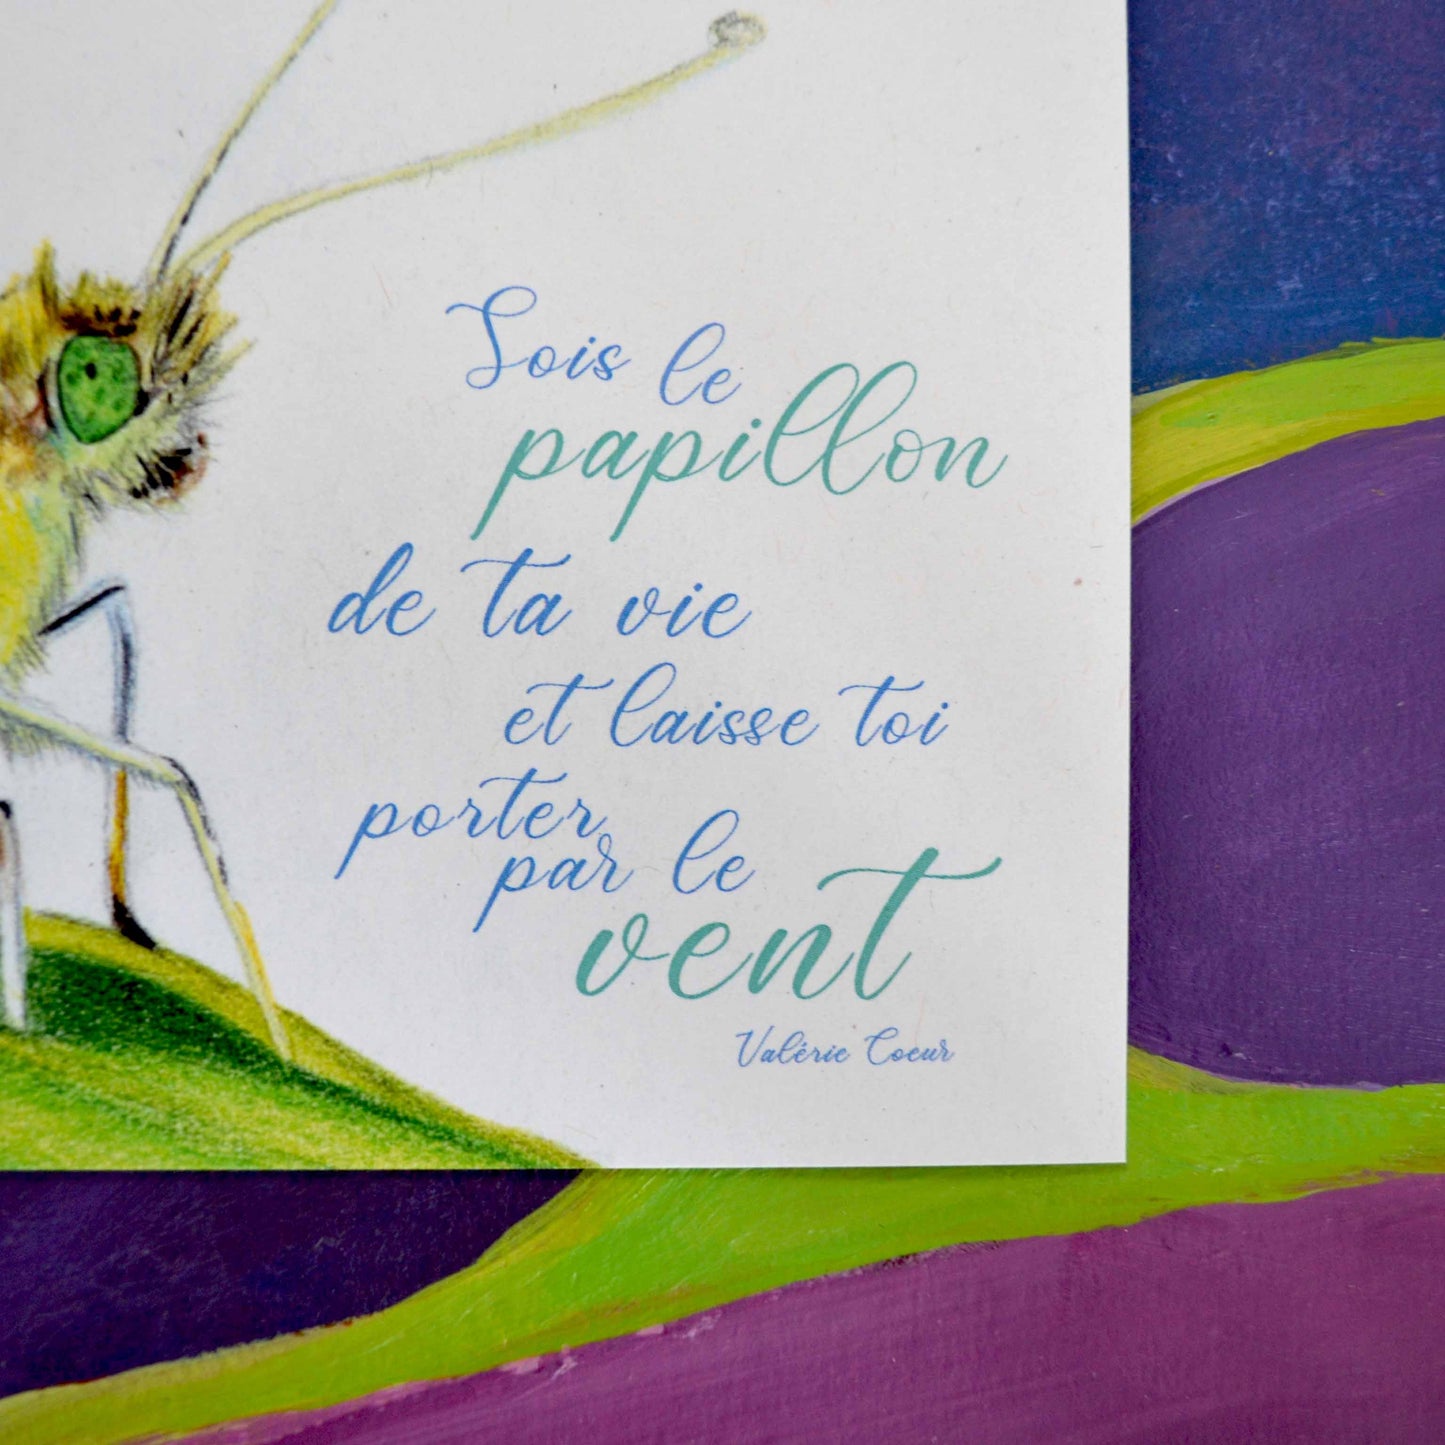 Sois le
papillon
de ta vie
et laisse toi
porter
par le
vent
Valérie Coeur